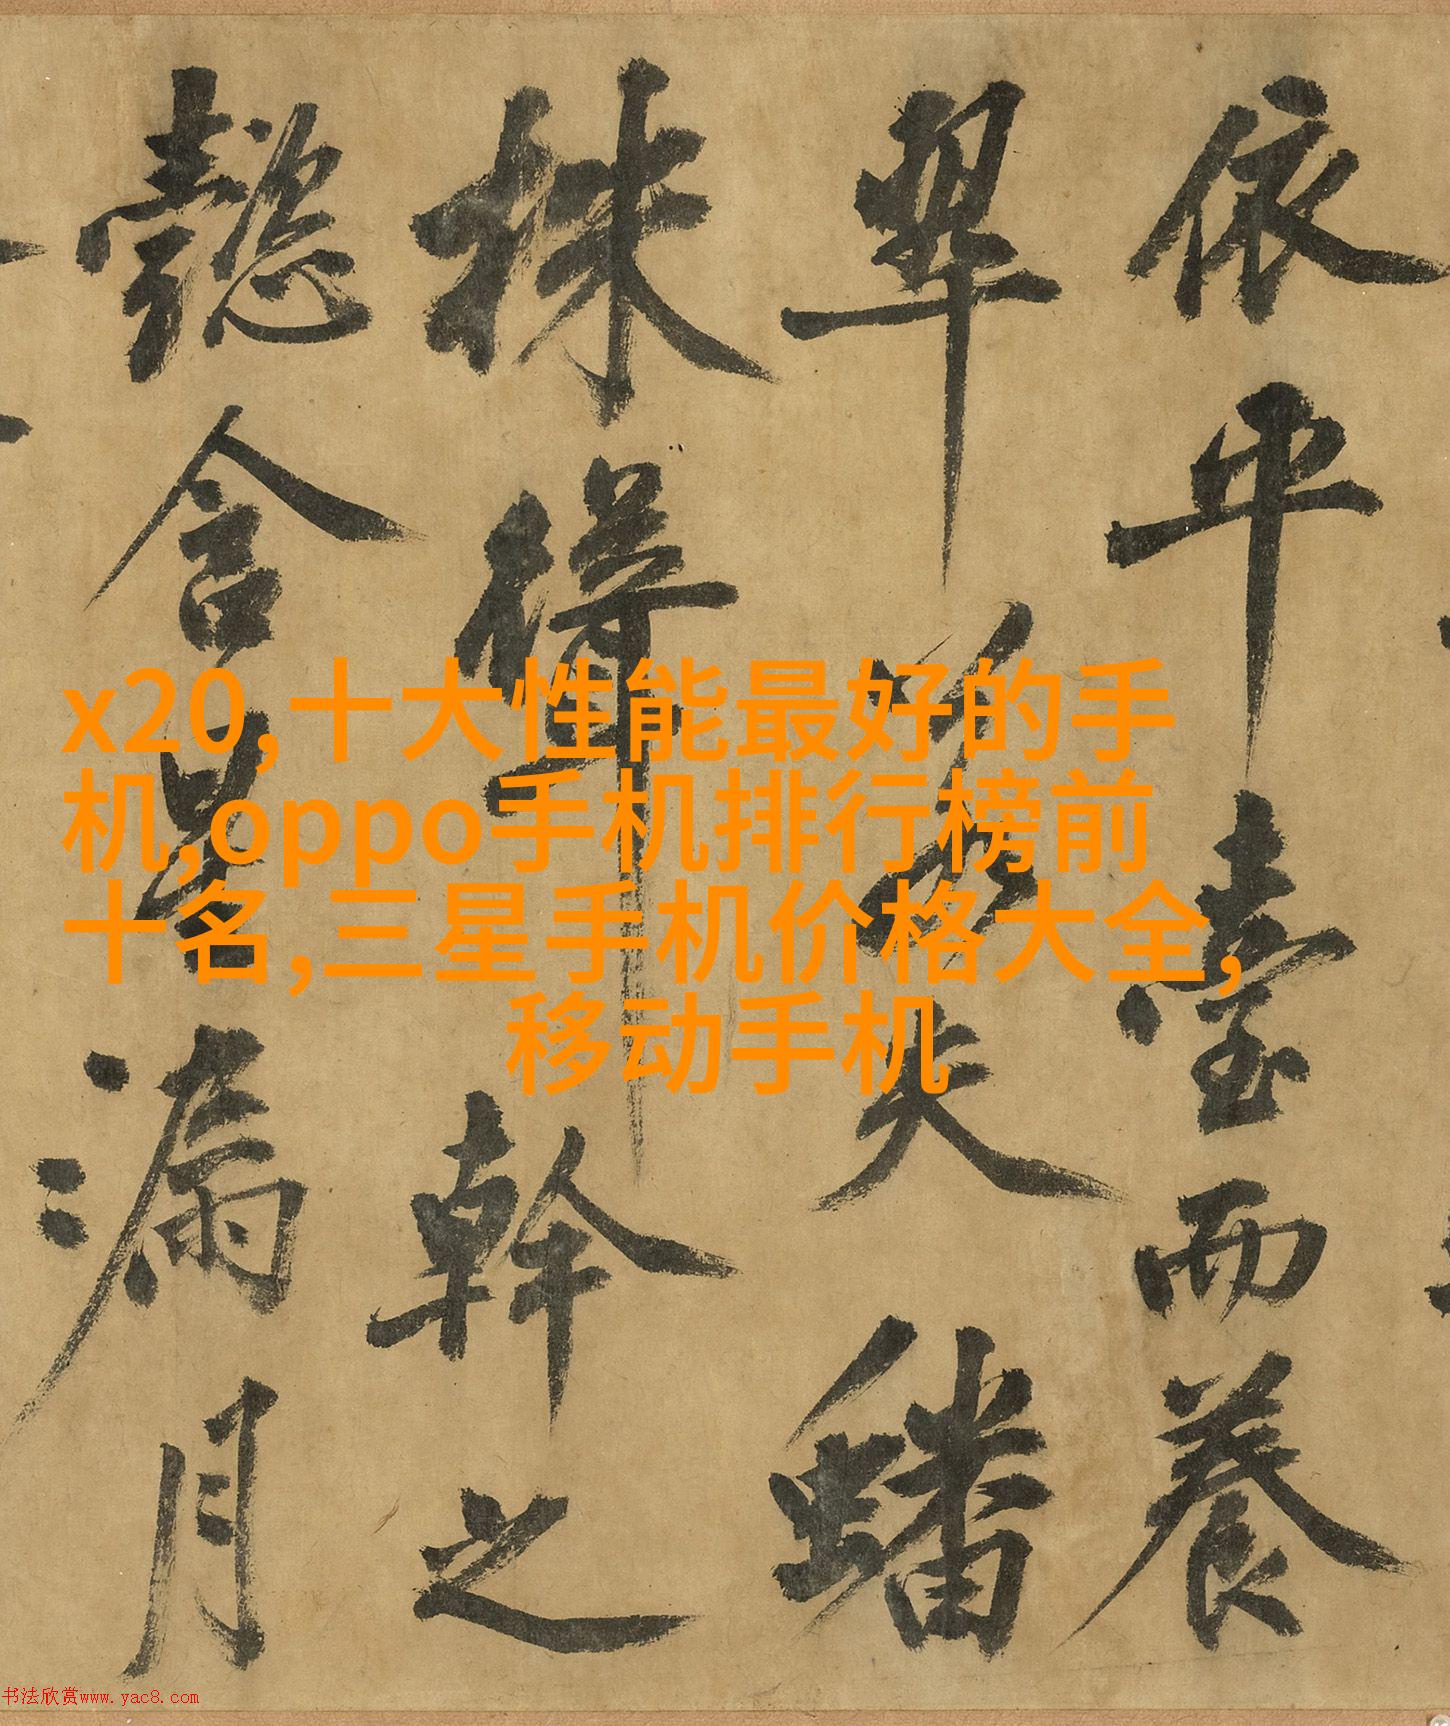 依平臺而養
翠若夫蟠
株聳幹之
懿含星漏月
x20,十大性能最好的手
机,oppo手机排行榜前
十名,三星手机价格大全,
移动手机
书法欣赏www.yac8.com